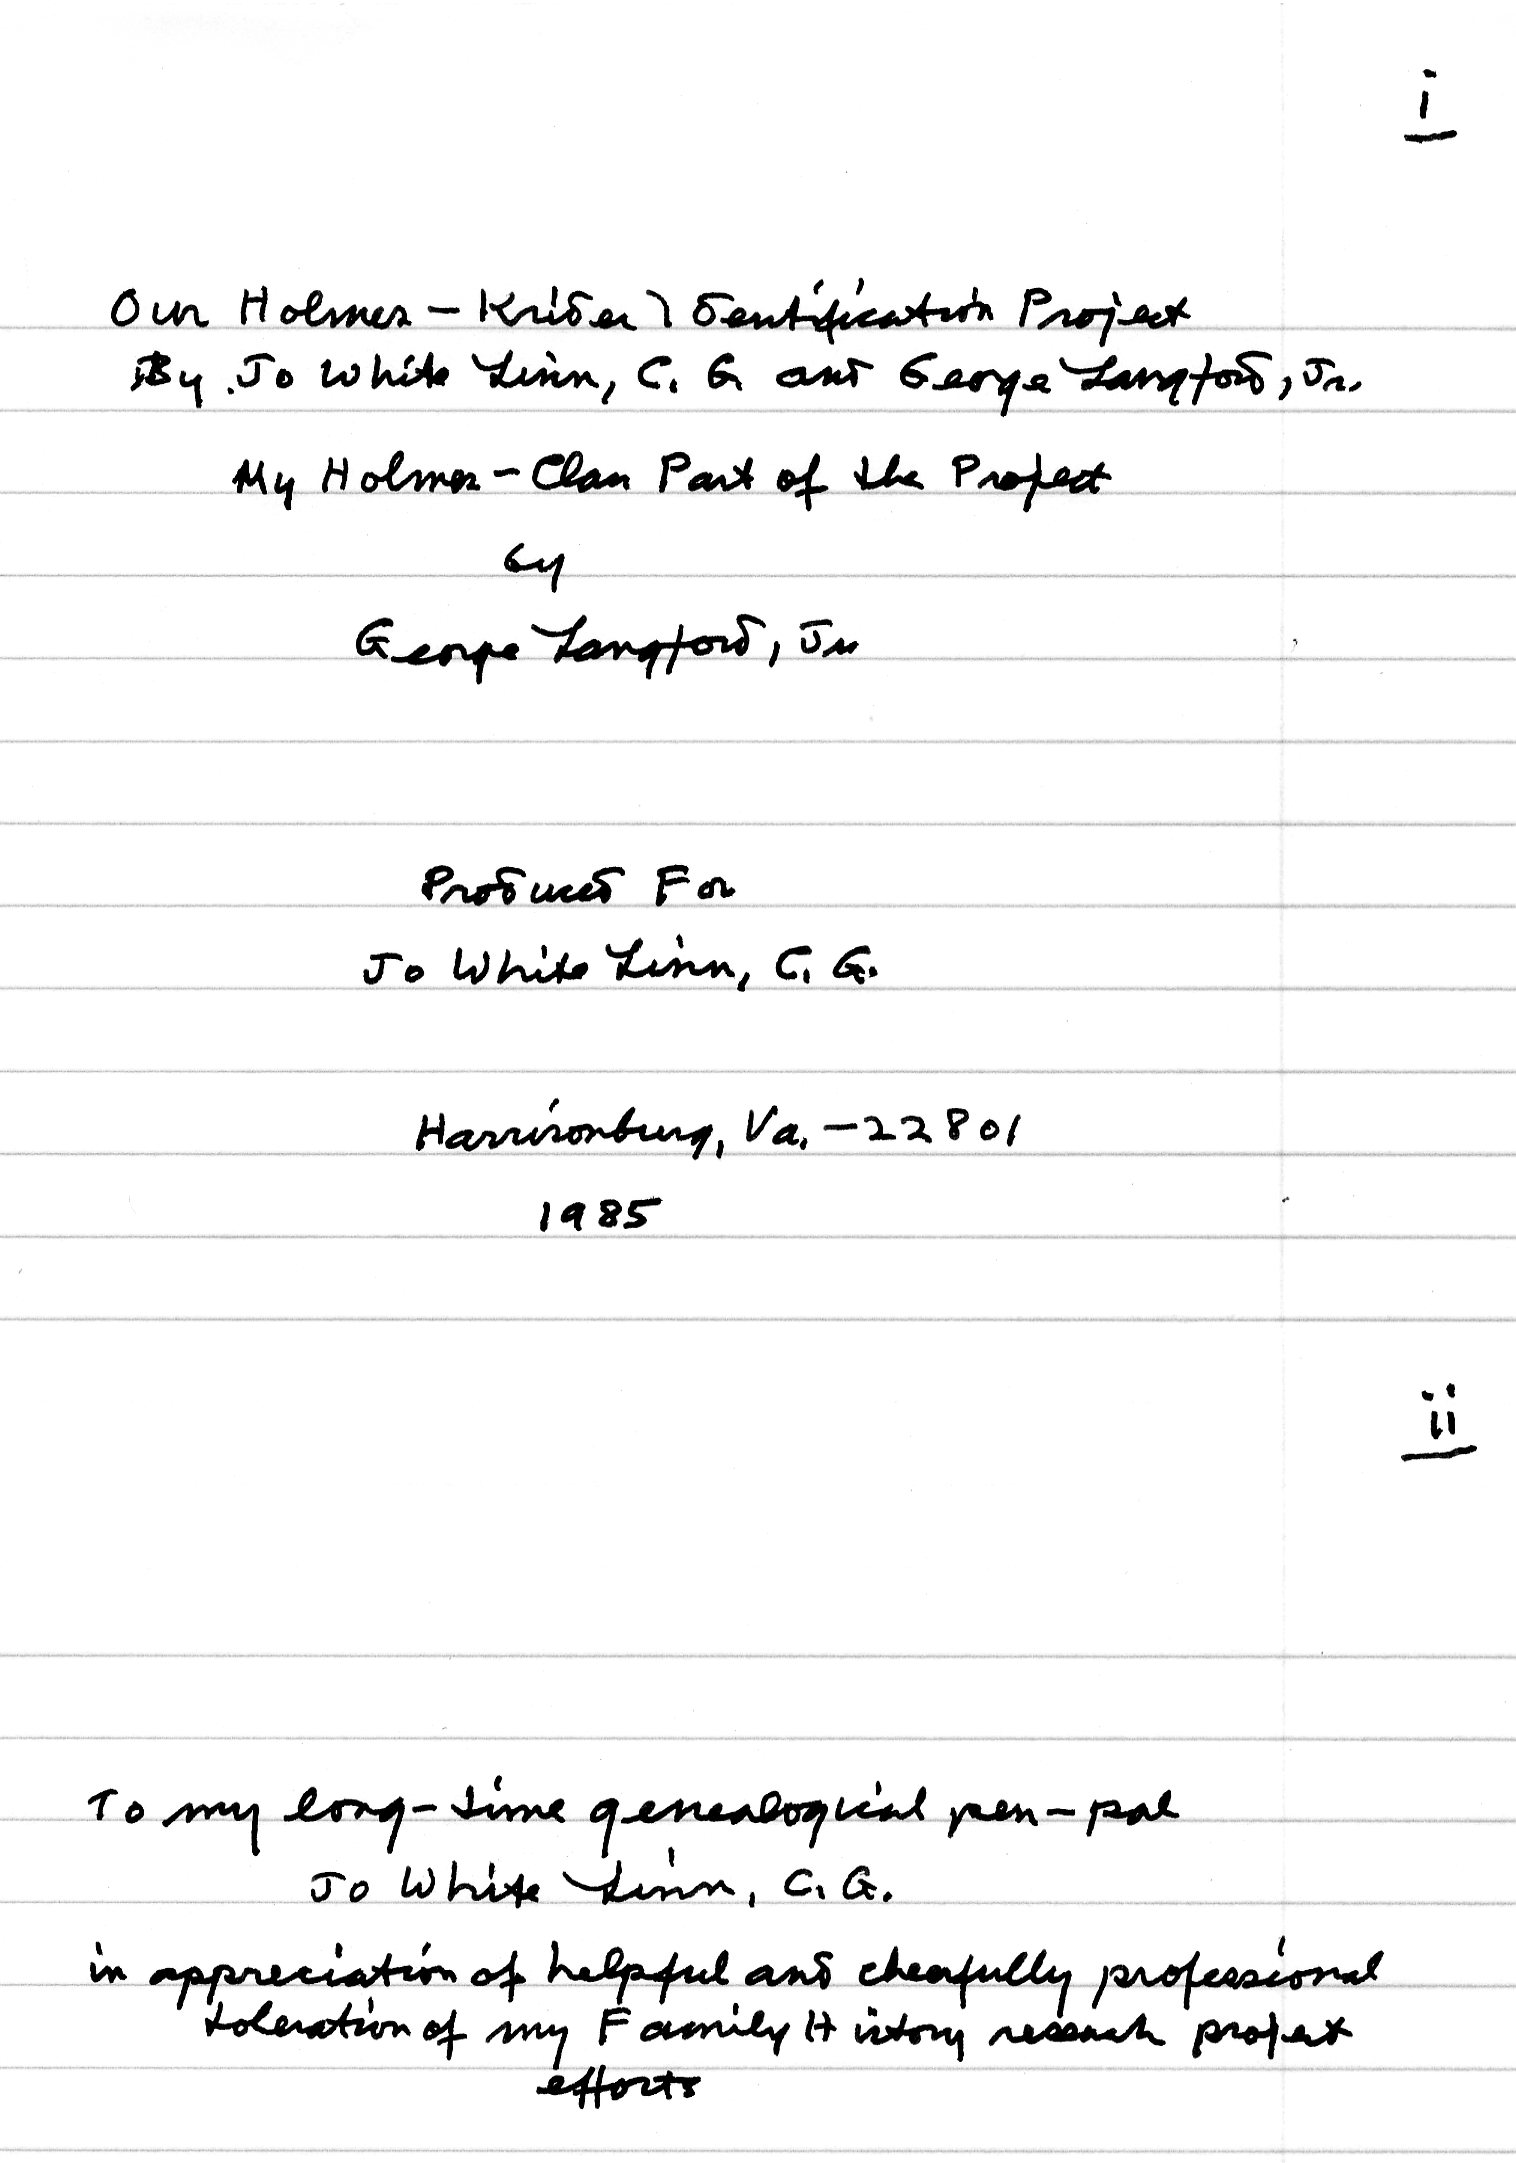 i
Our Holmes - Krider Identification Project
By Jo White Linn, C. G. and George Langford, Jr.
My Holmes - Clan Part of the Project
by
George Langford, Jr
Produced For
Jo White Linn, C. G.
Harrisonburg, Va. - 22801
1985
ii
To my long-time genealogical pen-pal
Jo White Linn, C. G.
in appreciation of helpful and cheerfully professional
toleration of my Family History research project
efforts